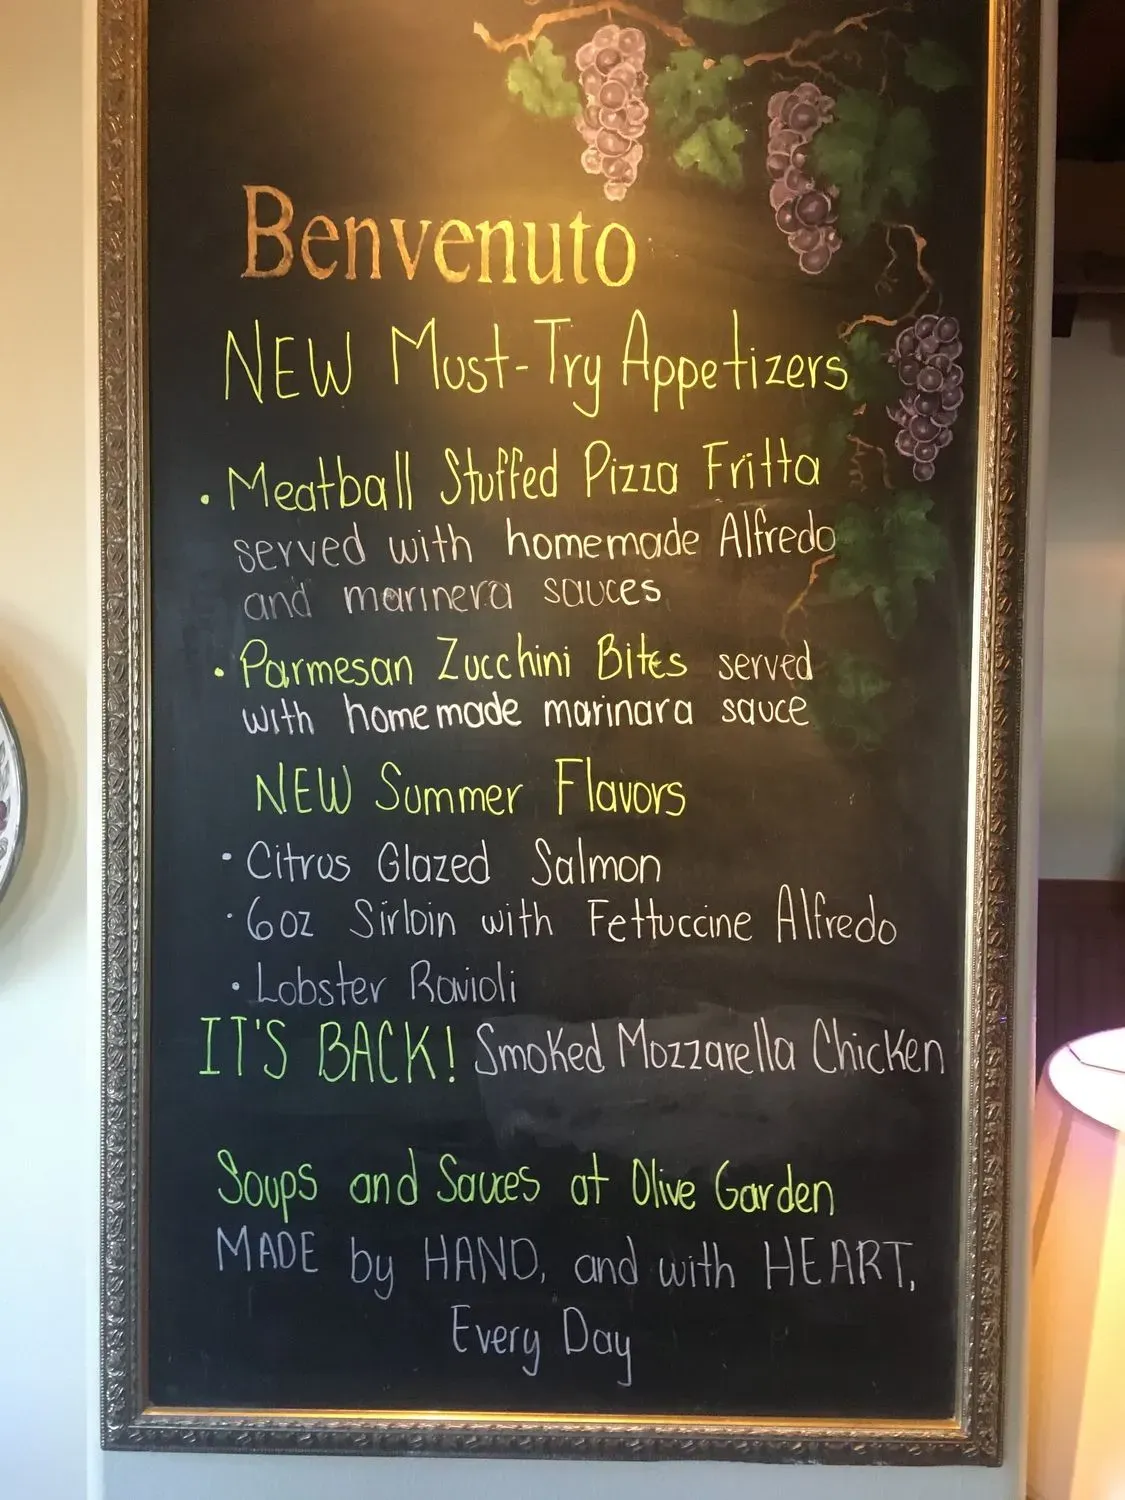 Benvenuto
NEW Must-Try Appetizers
• Meatball Stuffed Pizza Fritta
served with homemade Alfredo
and marinera sauces
• Parmesan Zucchini Bites served
with homemade marinara sauce
NEW Summer Flavors
• Citrus Glazed Salmon
• 6oz Sirloin with Fettuccine Alfredo
• Lobster Ravioli
IT'S BACK! Smoked Mozzarella Chicken
Soups and Sauces at Olive Garden
MADE by HAND, and with HEART,
Every Day